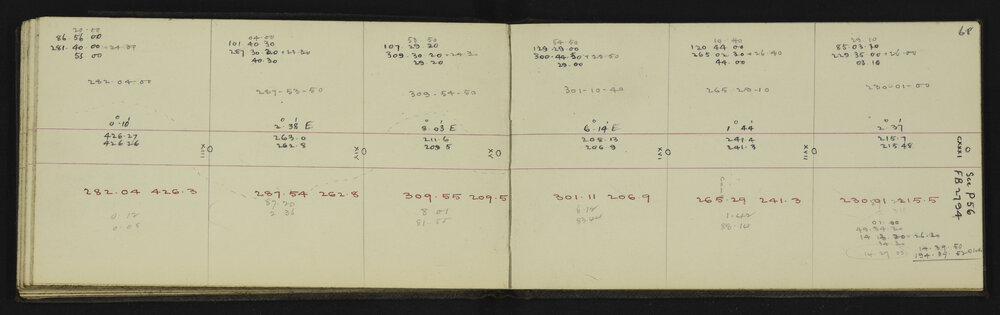 68
20.00
86 56 00
281.40.00+24.00
53 00
282.04.00
0° 10'
426.27
426.26
XIII
282.04 426.3
0.12
0.05
04.00
101 40 30
287 30 20+23.30
40.30
287-53-50
2° 38' E
263.0
262.8
XIV
287.54 262.8
87 20
2 36
107 29 20
309.30 20+24.30
29.20
309-54-50
8° 03' E
211.6
209.5
XV
309.55 209.5
8 01
81.55
54.50
129.29.00
300.44.30+25.50
29.00
301-10-40
6° 14' E
208.13
206.9
XVI
301.11 206.9
6.12
10.40
120 44 00
265 02.30+26.40
44.00
265.29.10
1° 44'
241.4
241.3
XVII
265.29 241.3
1.42
88.10
29.10
85.03.30
229 35 00+26.00
03.10
230-01-00
2° 37'
215.7
215.48
CXXXI
230.01 215.5
See P56
FB 2794
01.00
49.34.20
34.20
14 27 05
14.39.50